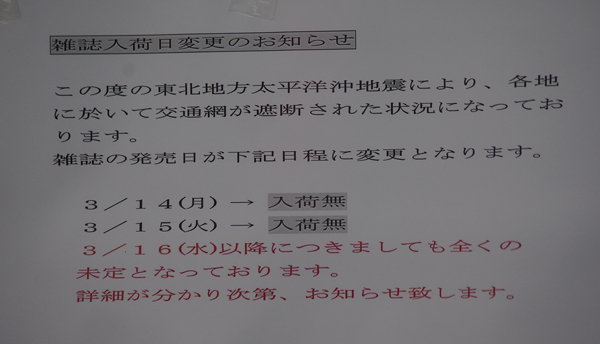 雑誌入荷日変更のお知らせ
この度の東北地方太平洋沖地震により、各地
に於いて交通網が遮断された状況になってお
ります。
雑誌の発売日が下記日程に変更となります。
3／14(月) → 入荷無
3／15(火) → 入荷無
3／16(水)以降につきましても全くの
未定となっております。
詳細が分かり次第、お知らせ致します。